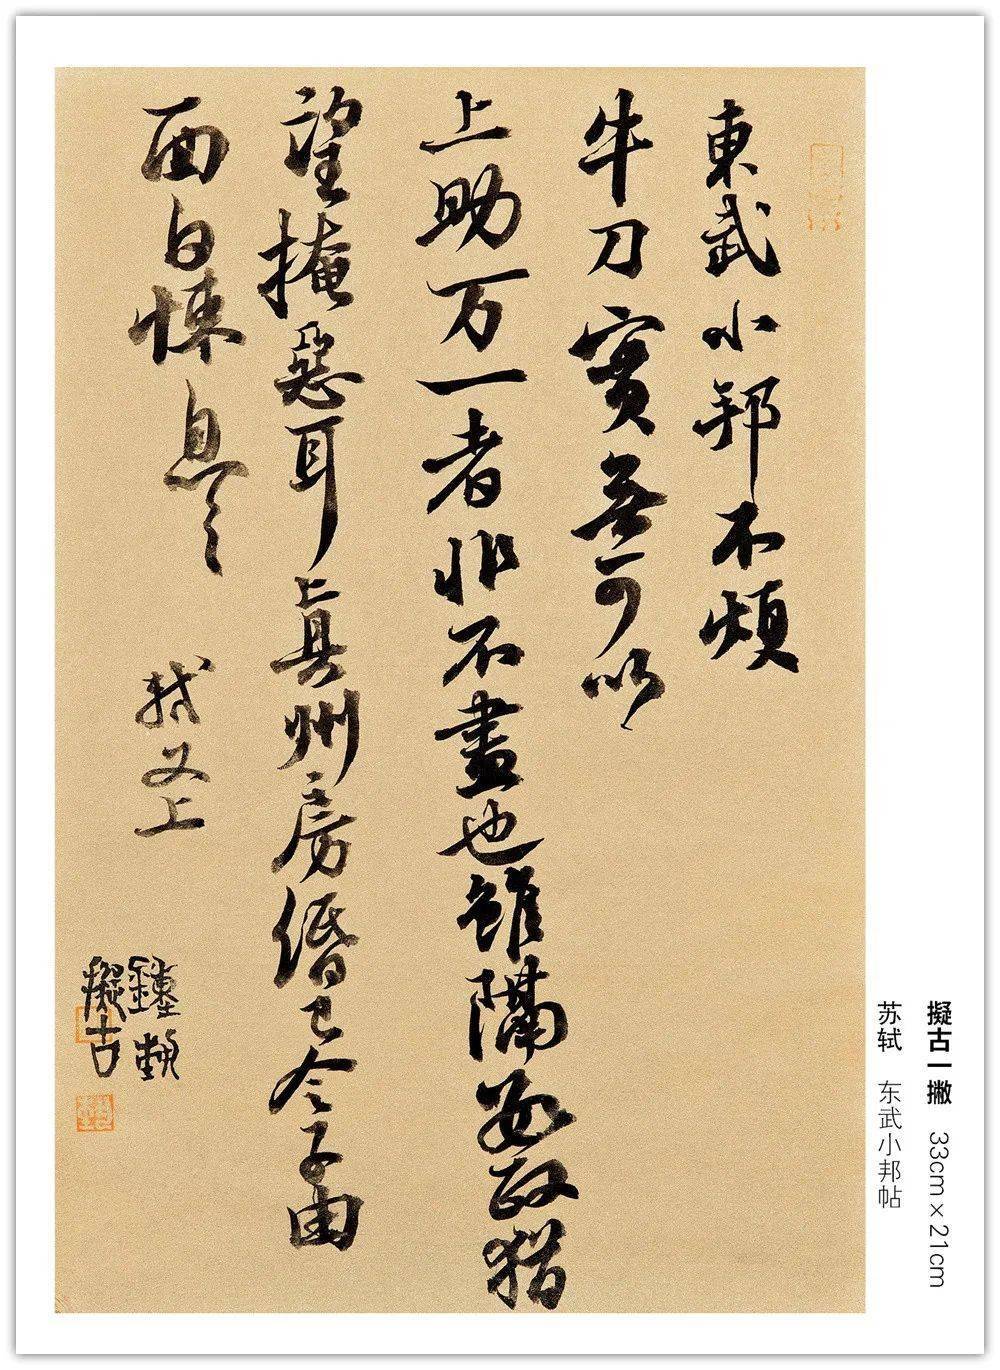 東武小邦不煩
牛刀實無可以
上助万一者非不盡也雖隔數政猶
望掩惡耳真州房緡已令子由
面白悚息〻 軾又上
擬古
擬古一撇 33cm×21cm
苏轼 东武小邦帖